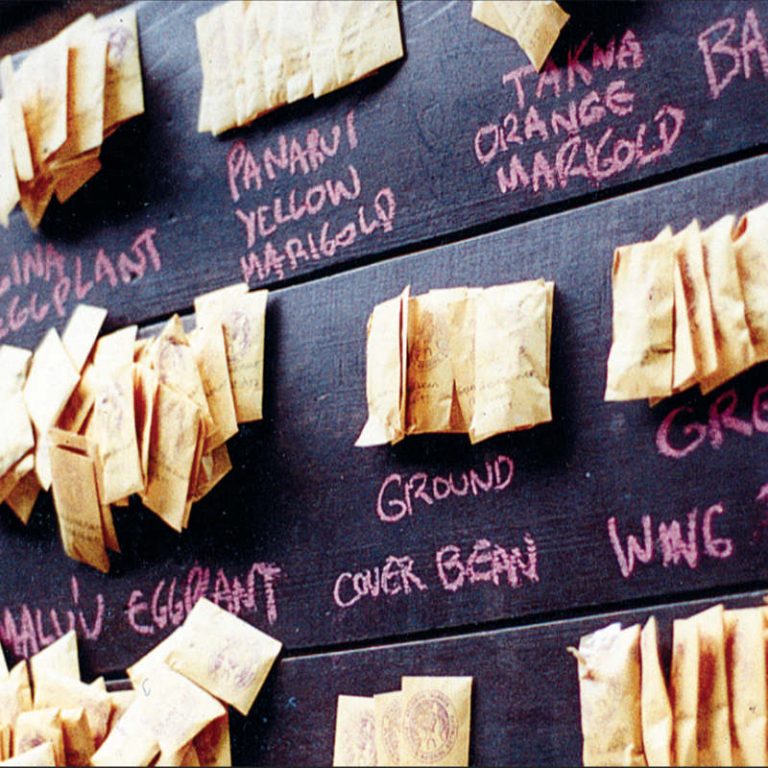 PANARUI
YELLOW
MARIGOLD
TAKNA
ORANGE
MARIGOLD
BA
GINA
EGGPLANT
GROUND
COVER BEAN
GRE
WING
MALUU EGGPLANT